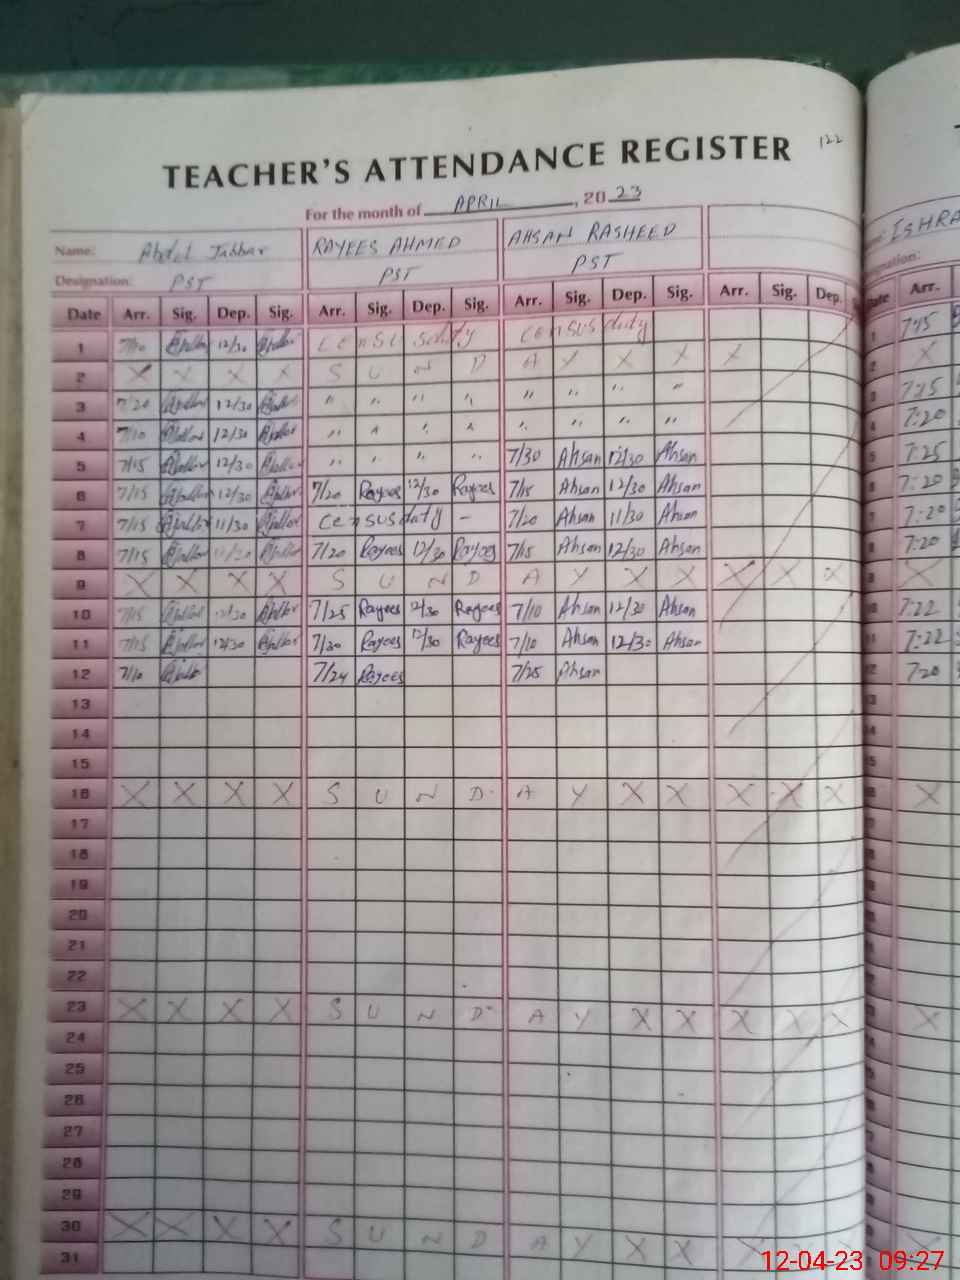 122
TEACHER'S ATTENDANCE REGISTER
For the month of APRIL, 2023
Name: Abdul Jabbar RAYEES AHMED AHSAN RASHEED ISHRA
Designation: PST PST PST
Date Arr. Sig. Dep. Sig. Arr. Sig. Dep. Sig. Arr. Sig. Dep. Sig. Arr. Sig. Dep. Date Arr.
1 7/10 12/30 Census duty Census duty 1 7:15
2 X X X X S U N D A Y X X X 2 X
3 7/20 12/30 " " " " " " " " 3 7:15
4 7/10 12/30 " " " " " " " " 4 7:20
5 7/15 12/30 " " " " 7/30 Ahsan 12/30 Ahsan 7:25
6 7/15 12/30 7/20 Rayees 12/30 Rayees 7/15 Ahsan 12/30 Ahsan 7:20
7 7/15 11/30 Census duty - 7/20 Ahsan 11/30 Ahsan 7:20
8 7/15 7/20 Rayees 12/30 Rayees 7/15 Ahsan 12/30 Ahsan 7:20
9 X X X X S U N D A Y X X X X X X
10 7/15 12/30 7/25 Rayees 12/30 Rayees 7/10 Ahsan 12/30 Ahsan 10 7:22
11 7/15 12/30 7/20 Rayees 12/30 Rayees 7/10 Ahsan 12/30 Ahsan 11 7:22
12 7/10 7/24 Rayees 7/25 Ahsan 12 7:20
13
14
15
16 X X X X S U N D A Y X X X X X X
17
18
19
20
21
22
23 X X X X S U N D A Y X X X X X X
24
25
26
27
28
29
30 X X X X S U N D A Y X X
31
12-04-23 09:27